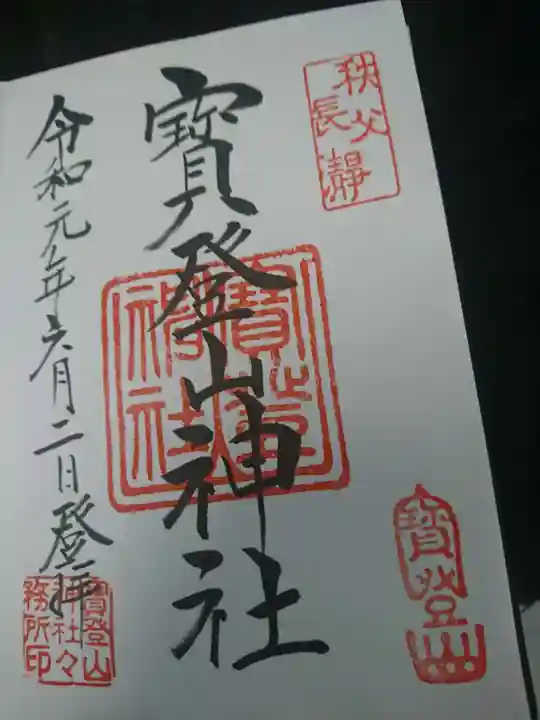 秩父
長瀞
寳登山神社
寳登山
令和元年六月二日登拝
寳登山
神社々
務所印